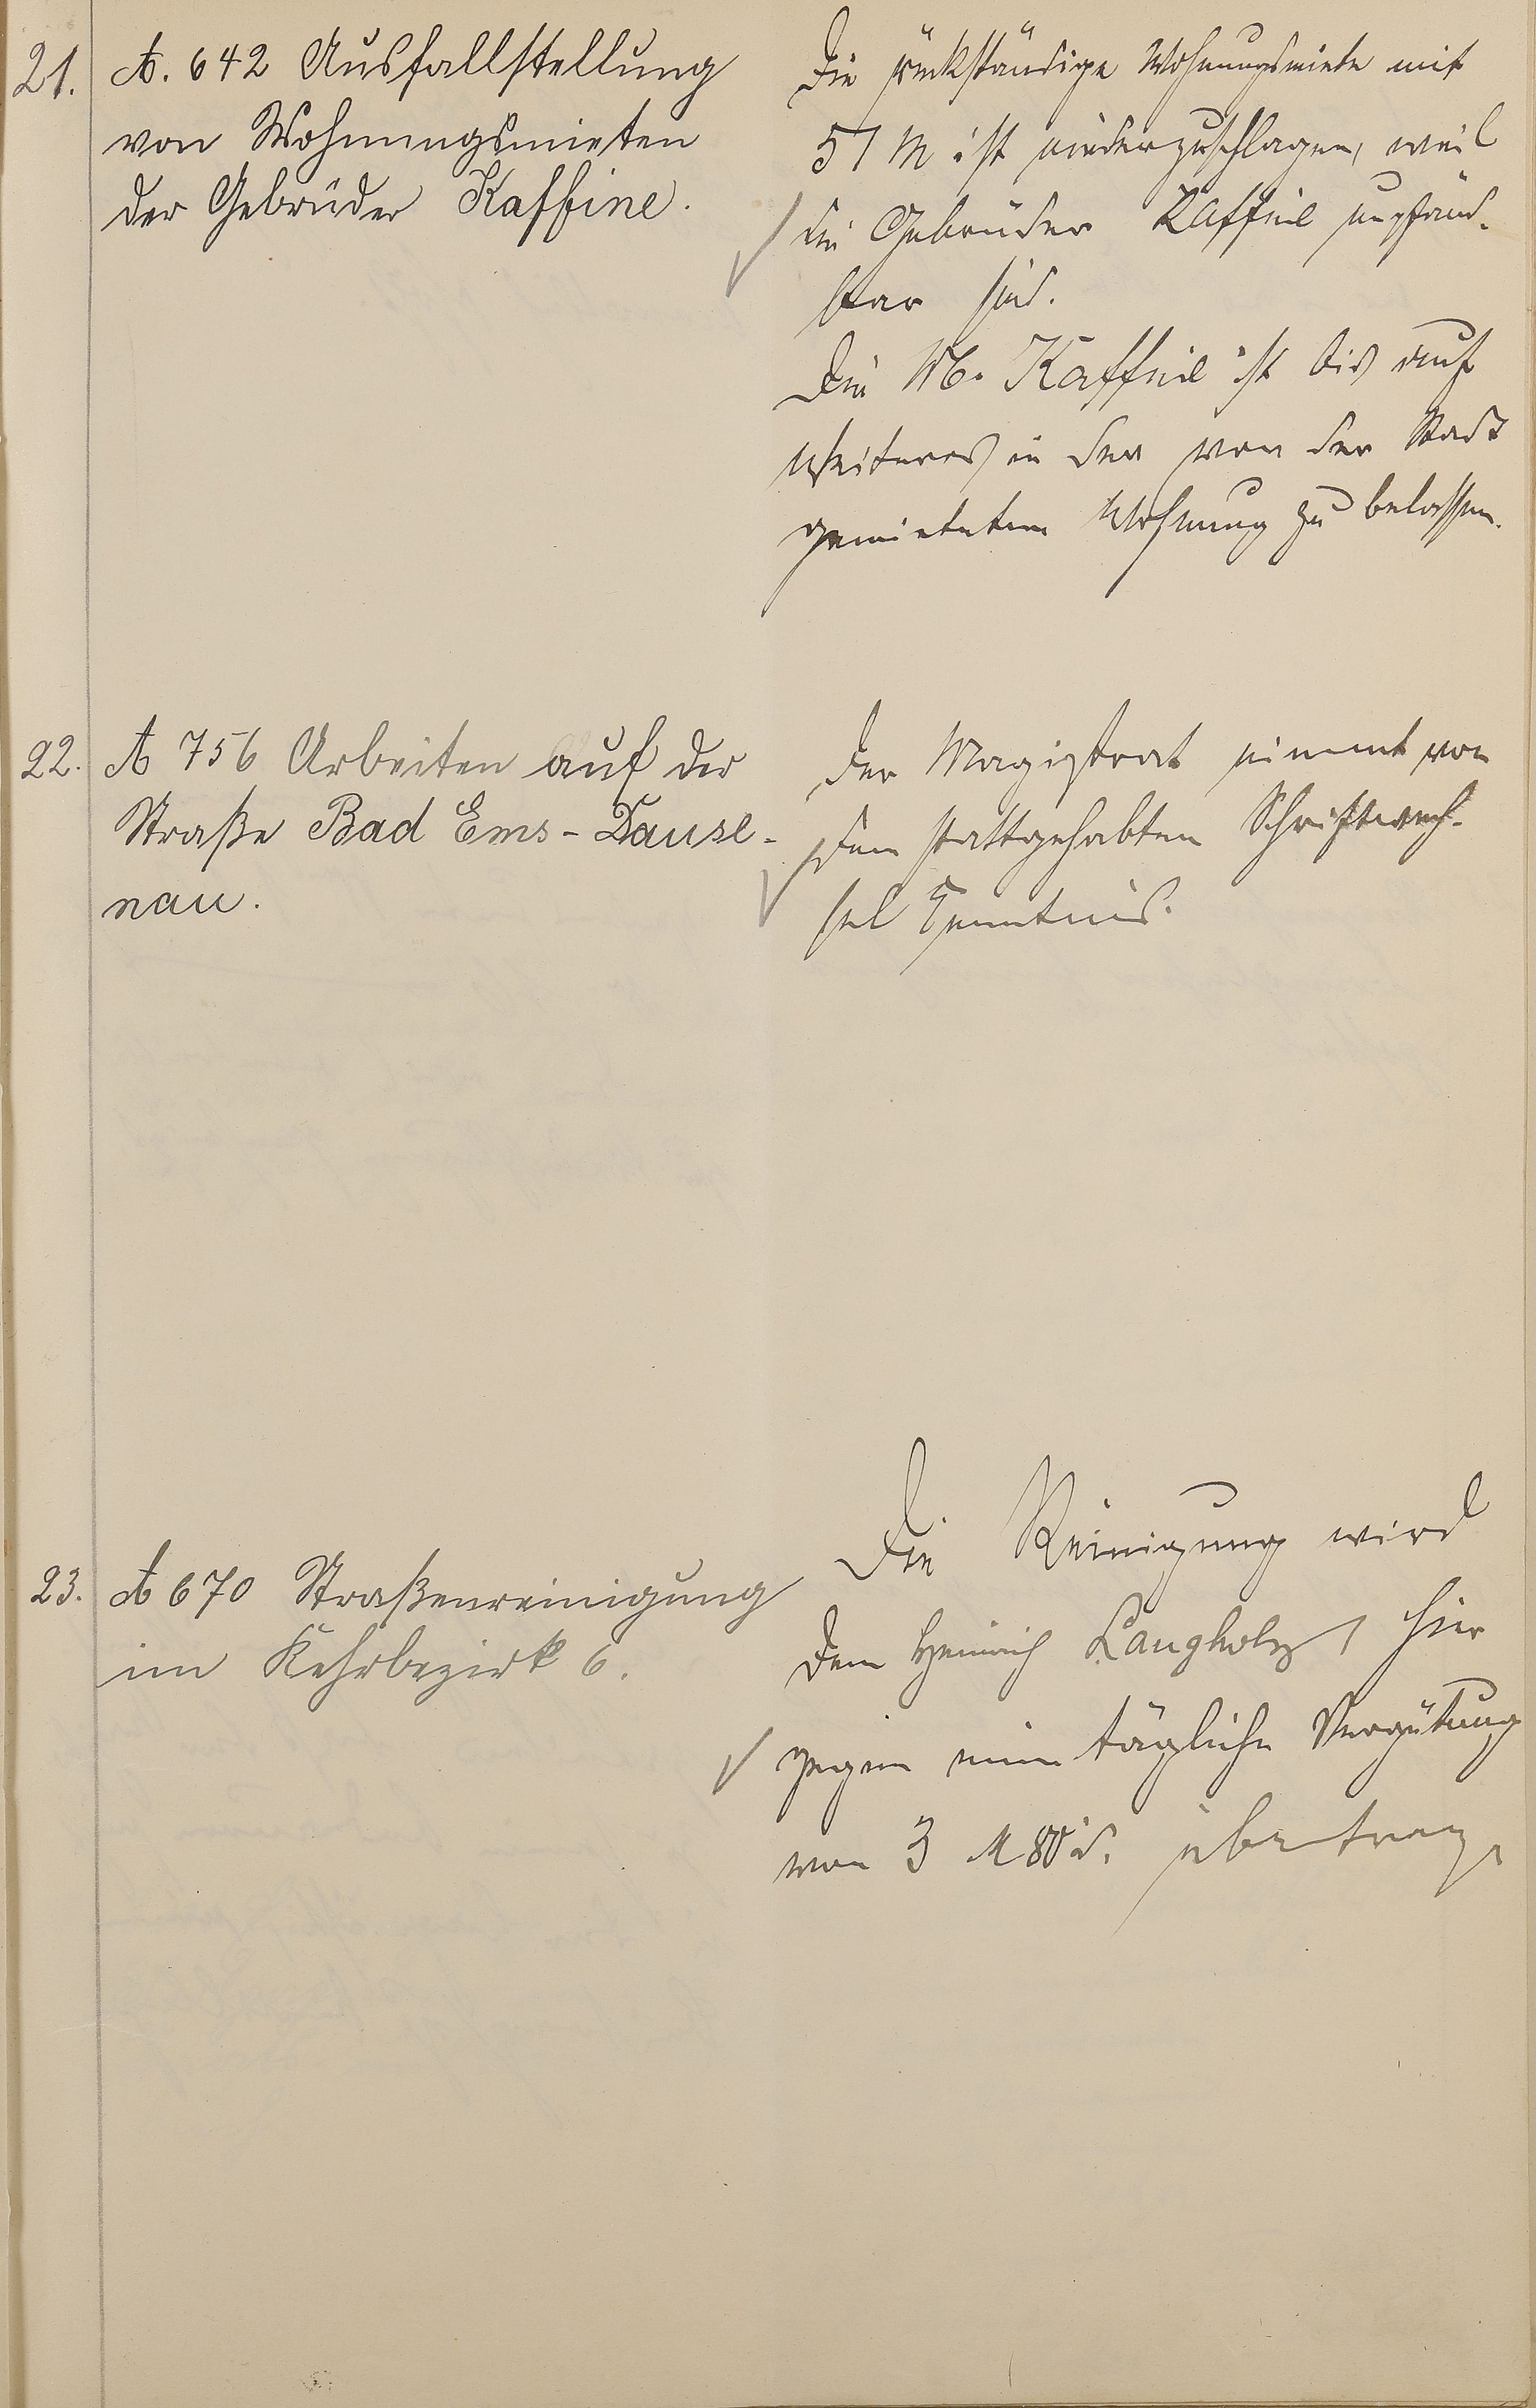 21.
A. 642 Ausfallstellung
von Wohnungsmieten
der Gebrüder Kaffine.
Die rückständige Wohnungsmiete mit
51 M ist niederzuschlagen, weil
die Gebrüder Kaffine unpfänd-
bar sind.
Die W. Kaffine ist bis auf
Weiteres in der von der Stadt
gemieteten Wohnung zu belassen.
22.
A 756 Arbeiten auf der
Straße Bad Ems - Dause-
nau.
Der Magistrat nimmt von
dem stattgehabten Schriftwech-
sel Kenntnis.
23.
A 670 Straßenreinigung
im Kehrbezirk 6.
Die Reinigung wird
dem Heinrich Langholz, hier
gegen eine tägliche Vergütung
von 3 M 80 d. übertrag.